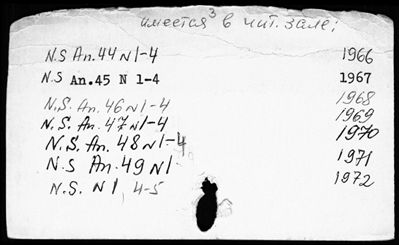 имеется 3 в чит. зале:
N.S An. 44 N 1-4 1966
N.S An.45 N 1-4 1967
N.S. An. 46 N 1-4 1968
N.S. An. 47 N 1-4 1969
N.S. An. 48 N 1-4 1970
N.S An. 49 N 1 1971
N.S. N 1, 4-5 1972